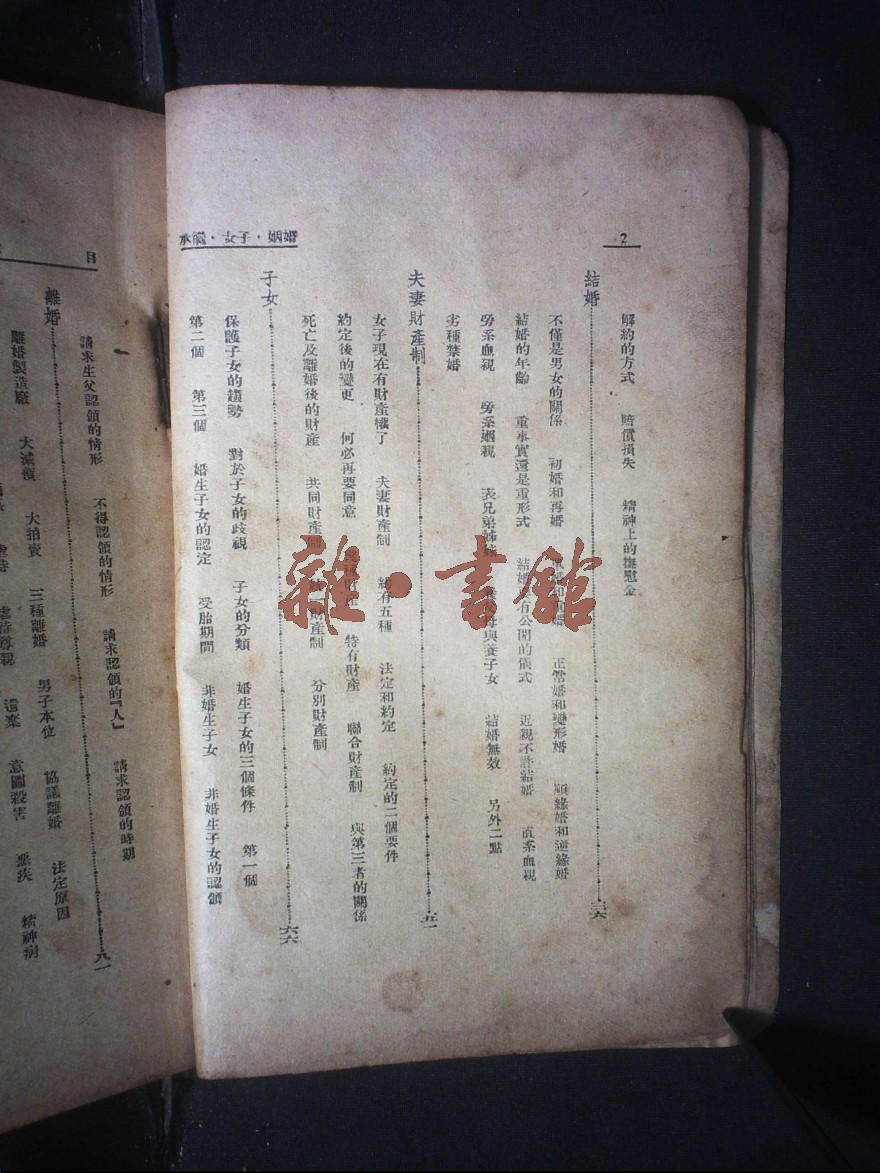 2
婚姻・子女・繼承
解約的方式　賠償損失　精神上的撫慰金
結婚……三六
不僅是男女的關係　初婚和再婚　正常婚和變形婚　順緣婚和逆緣婚
結婚的年齡　重事實還是重形式　結婚 有公開的儀式　近親不許結婚　直系血親
旁系血親　旁系姻親　表兄弟姊妹　養父母與養子女　結婚無效　另外二點
劣種禁婚
夫妻財產制……五一
女子現在有財產權了　夫妻財產制　總有五種　法定和約定　約定的二個要件
約定後的變更　何必再要同意　特有財產　聯合財產制　與第三者的關係
死亡及離婚後的財產　共同財產制　財產制　分別財產制
子女……六六
保護子女的趨勢　對於子女的歧視　子女的分類　婚生子女的三個條件　第一個
第二個　第三個　婚生子女的認定　受胎期間　非婚生子女　非婚生子女的認領
目
請求生父認領的情形　不得認領的情形　請求認領的『人』　請求認領的時期
離婚……八一
離婚製造廠　大減價　大拍賣　三種離婚　男子本位　協議離婚　法定原因
虐待　虐待尊親　遺棄　意圖殺害　惡疾　精神病
雜・書館